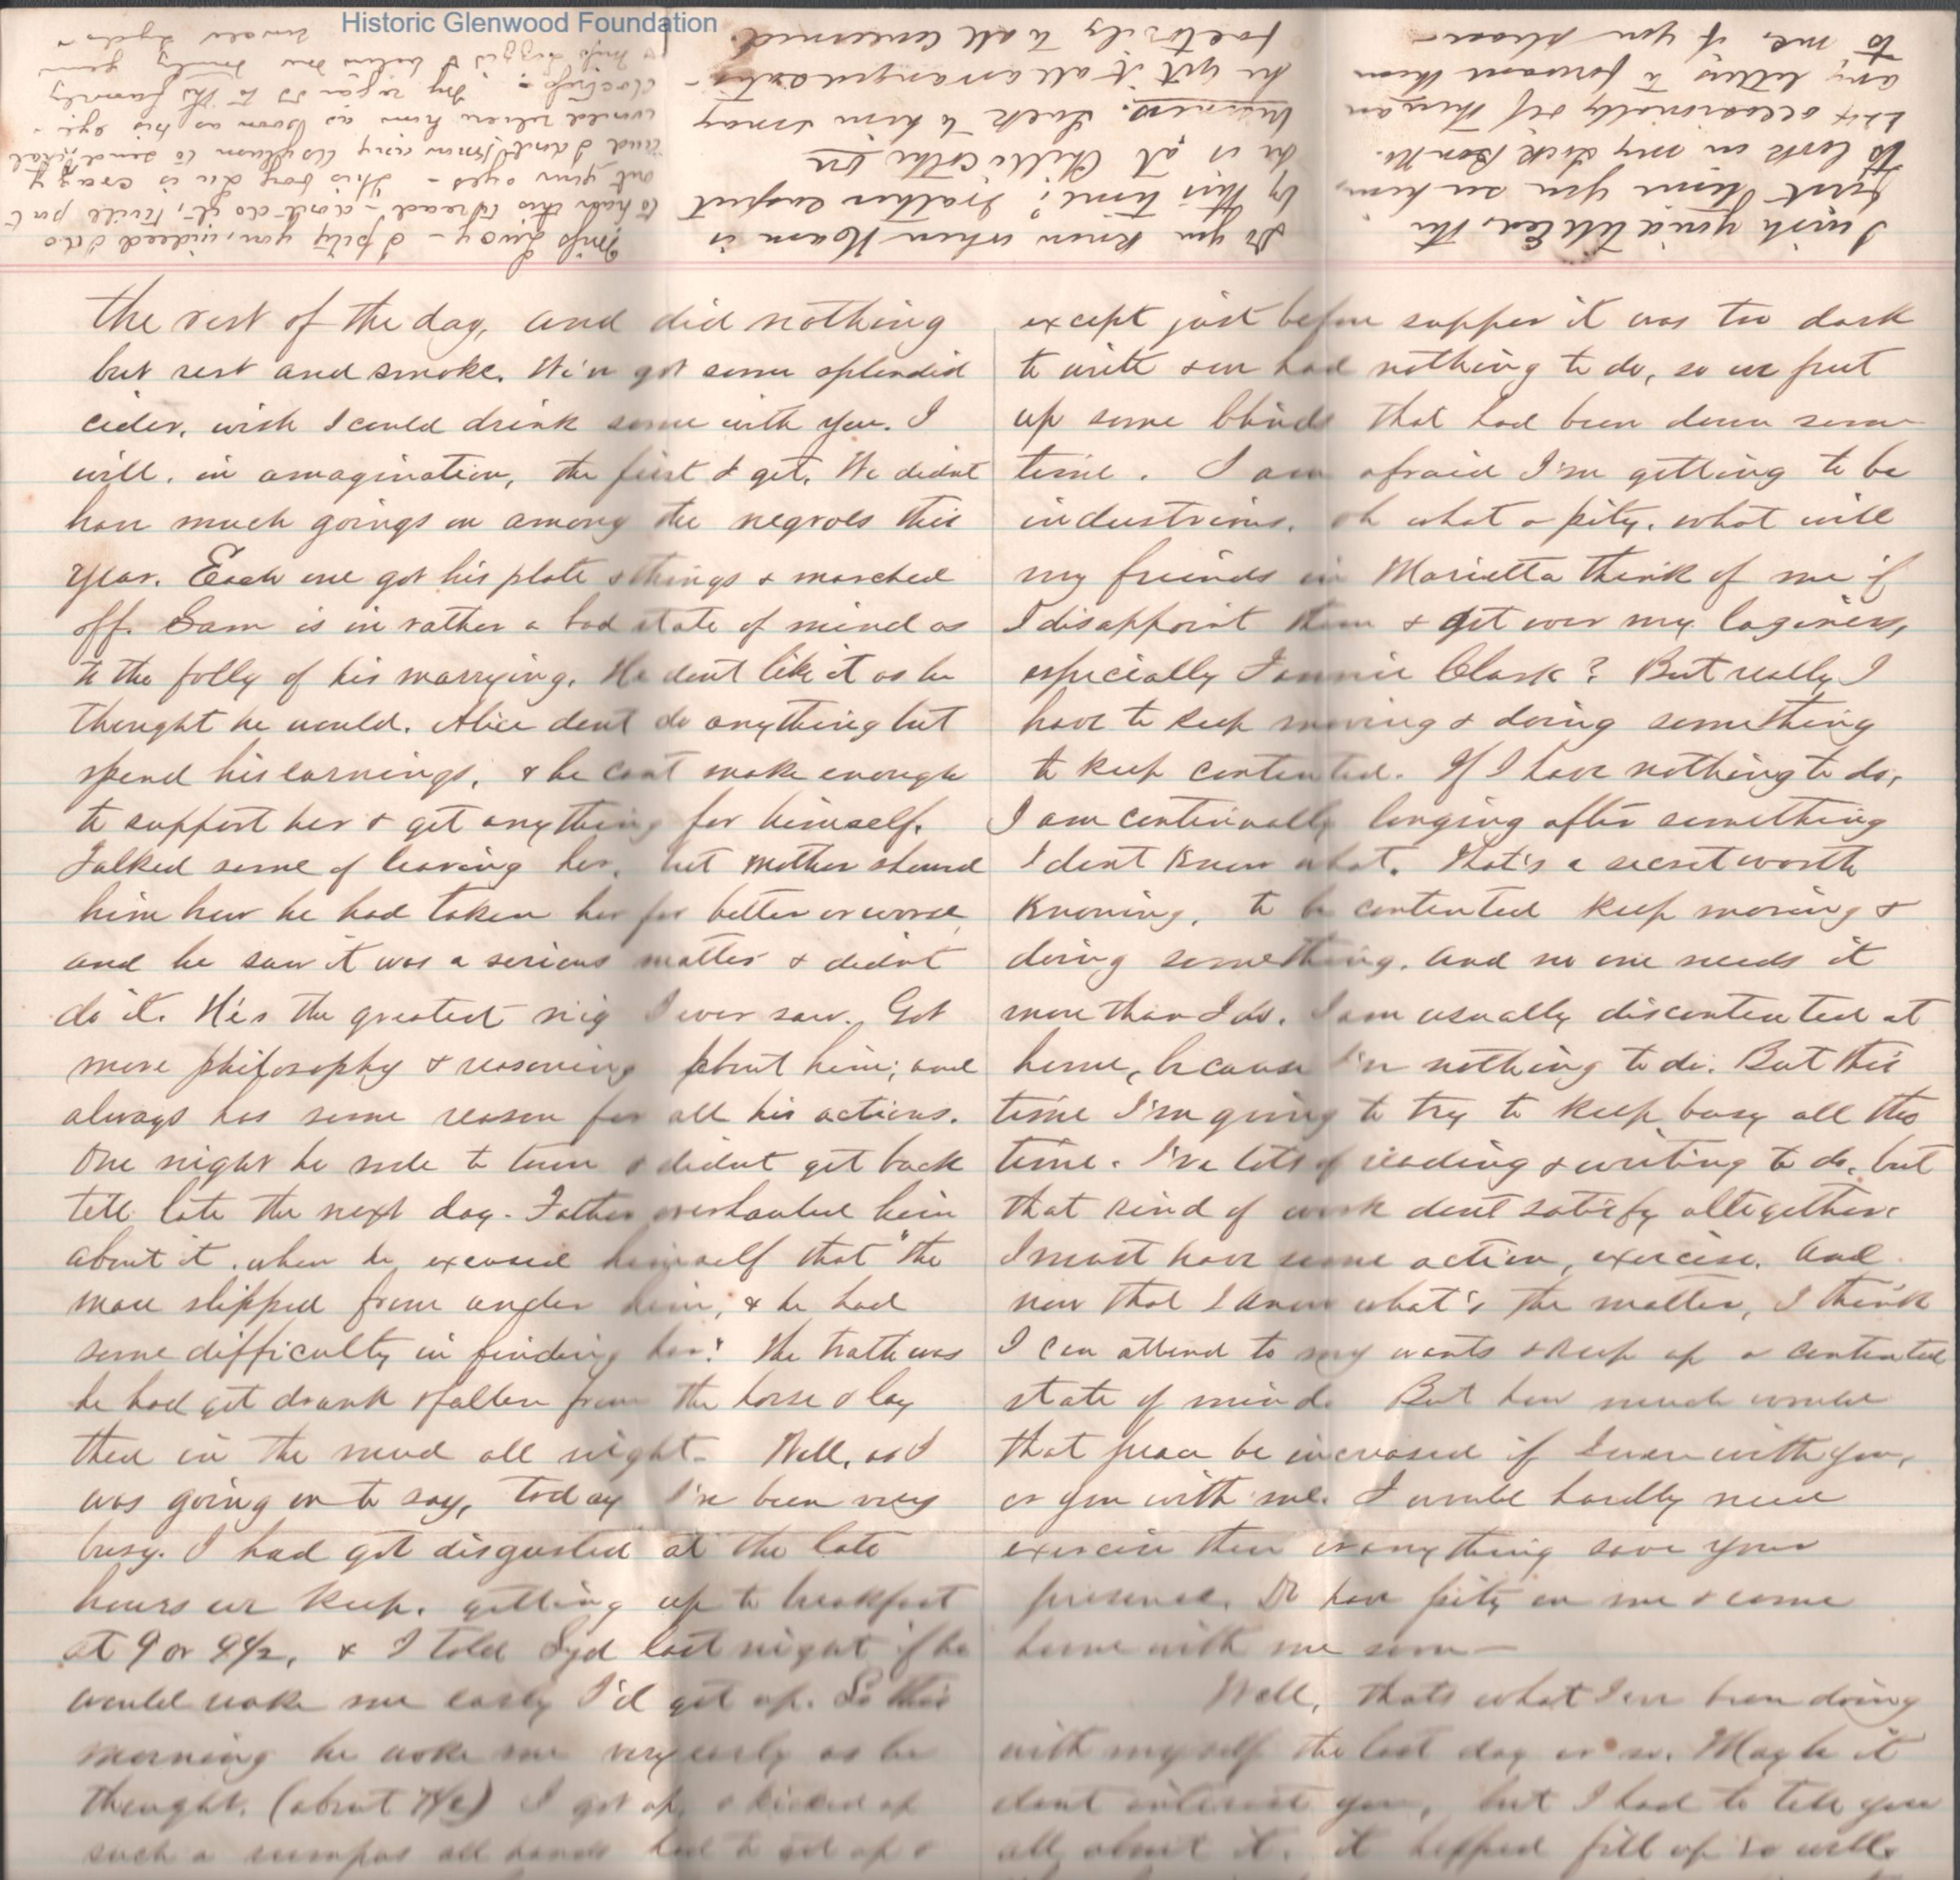 Historic Glenwood Foundation
the rest of the day, and did nothing
but rest and smoke. We've got some splendid
cider, wish I could drink some with you. I
will, in amagination, the first I get. We didnt
have much goings on among the negroes this
year. Each one got his plate & things & marched
off. Sam is in rather a bad state of mind as
to the folly of his marrying. He dont like it as he
thought he would. Alice dont do anything but
spend his earnings, & he cant make enough
to support her & get anything for himself.
Talked some of leaving her, but mother showed
him how he had taken her for better or worse,
and he saw it was a serious matter & didnt
do it. He's the greatest nig I ever saw. Got
more philosophy & reasoning about him; and
always has some reason for all his actions.
One night he rode to town & didnt get back
till late the next day. Father overhauled him
about it, when he excused himself that "the
mare slipped from under him, & he had
some difficulty in finding her." The truth was
he had got drunk & fallen from the horse & lay
there in the mud all night. Well, as I
was going on to say, today I've been very
busy. I had got disgusted at the late
hours we keep, getting up to breakfast
at 9 or 9½, & I told Syd last night if he
would wake me early I'd get up. So this
morning he woke me very early as he
thought, (about 7½) I got up, & kicked up
such a rumpus all hands had to get up &
except just before supper it was too dark
to write & we had nothing to do, so we put
up some blinds that had been down some
time. I am afraid I'm getting to be
industrious, oh what a pity, what will
my friends in Marietta think of me if
I disappoint them & get over my laziness,
especially Fannie Clark? But really I
have to keep moving & doing something
to keep contented. If I have nothing to do,
I am continually longing after something
I dont know what. That's a secret worth
knowing, to be contented keep moving &
doing something. And no one needs it
more than I do. I am usually discontented at
home, because I've nothing to do. But this
time I'm going to try to keep busy all the
time. I've lots of reading & writing to do, but
that kind of work dont satisfy alltogether.
I must have some action, exercise. And
now that I know what's the matter, I think
I can attend to my wants & keep up a contented
state of mind. But how much would
that peace be increased if I were with you,
or you with me. I would hardly need
exercise then or anything save your
presence. Do have pity on me & come
home with me soon—
Well, thats what I've been doing
with myself the last day or so. Maybe it
dont interest you, but I had to tell you
all about it. it helped fill up so well.
I wish you'd tell the
first time you see him,
to look in my Lock Box No.
occasionally & if there are
any letters to forward them
to me, if you please—
Do you know where Noam is
by this time? Mother expect
he is at Chillicothe on
business. Luck to him & may
he get it all arranged satis-
factorily to all concerned.
Miss Lucy— I pity you, indeed I do
to have this to read— dont do it, twill put
out your eyes— This boy Lu is crazy
and I
would relieve him as soon as his eye